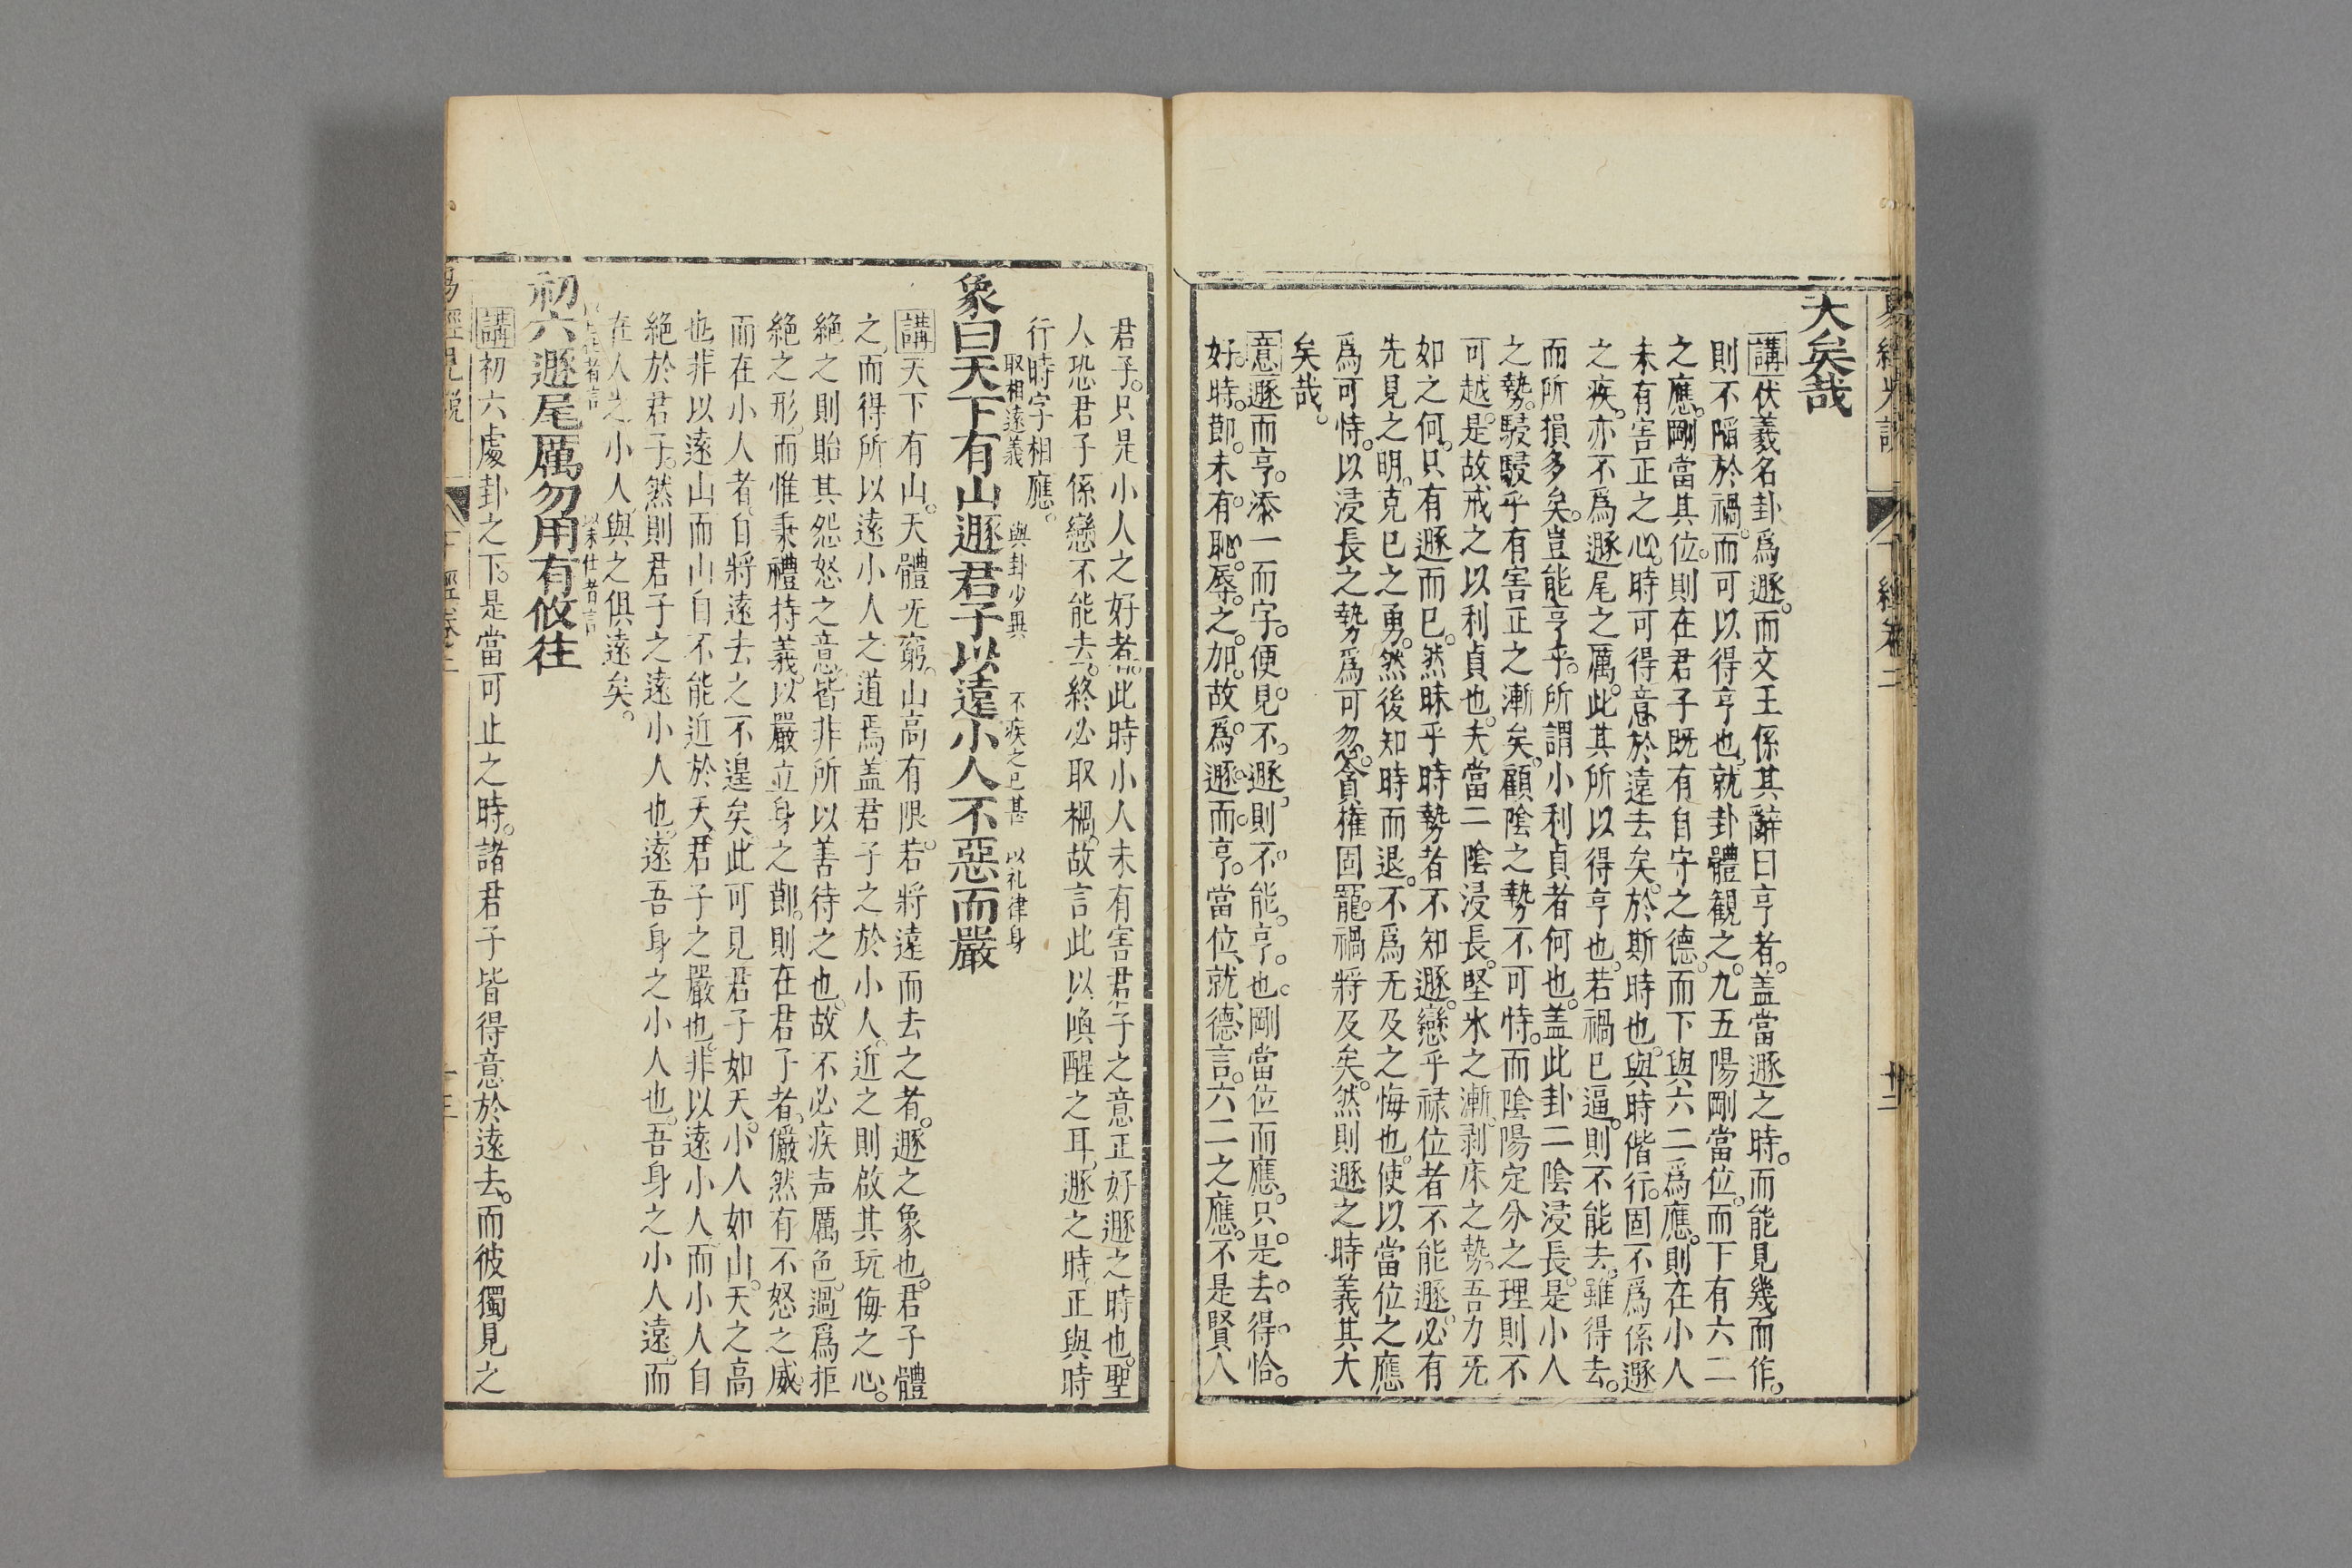 大矣哉
講伏羲名卦爲遯。而文王係其辭曰亨者。盖當遯之時。而能見幾而作。
則不陷於禍。而可以得亨也。就卦體観之。九五陽剛當位。而下有六二
之應。剛當其位。則在君子既有自守之德。而下與六二爲應。則在小人
未有害正之心。時可得意於遠去矣。於斯時也。與時偕行。固不爲係遯
之疾。亦不爲遯尾之厲。此其所以得亨也。若禍已逼。則不能去。雖得去。
而所損多矣。豈能亨乎。所謂小利貞者何也。盖此卦二陰浸長。是小人
之勢。駸駸乎有害正之漸矣。顧陰之勢不可恃。而陰陽定分之理則不
可越。是故戒之以利貞也。夫當二陰浸長。堅氷之漸。剥床之勢。吾力旡
如之何。只有遯而已。然昧乎時勢者不知遯。戀乎禄位者不能遯。必有
先見之明。克已之勇。然後知時而退。不爲无及之悔也。使以當位之應
爲可恃。以浸長之勢爲可忽。貪権固寵。禍將及矣。然則遯之時義其大
矣哉。
意遯而亨。添一而字。便見不遯。則不能亨也。剛當位而應。只是去得恰
好。時節。未有恥辱之加。故爲遯而亨。當位就德言。六二之應。不是賢人
君子。只是小人之好者。此時小人未有害君子之意正好遯之時也。聖
人恐君子係戀不能去。終必取禍。故言此以喚醒之耳。遯之時。正與時
行時字相應。
取相遠義　與卦少異　不疾之已甚　以礼律身
象曰天下有山遯君子以遠小人不惡而嚴
講天下有山。天體旡窮。山高有限。若將遠而去之者。遯之象也。君子體
之。而得所以遠小人之道焉。盖君子之於小人。近之則啟其玩侮之心。
絶之則貽其怨怒之意。皆非所以善待之也。故不必疾声厲色。過爲拒
絶之形。而惟秉禮持義。以嚴立身之節。則在君子者。儼然有不怒之威。
而在小人者。自將遠去之不遑矣。此可見君子如天。小人如山。天之高
也。非以遠山而山自不能近於天。君子之嚴也。非以遠小人。而小人自
絶於君子。然則君子之遠小人也。遠吾身之小人也。吾身之小人遠。而
在人之小人。與之俱遠矣。
以未仕者言
初六遯尾厲勿用有攸往
講初六處卦之下。是當可止之時。諸君子皆得意於遠去。而彼獨見之